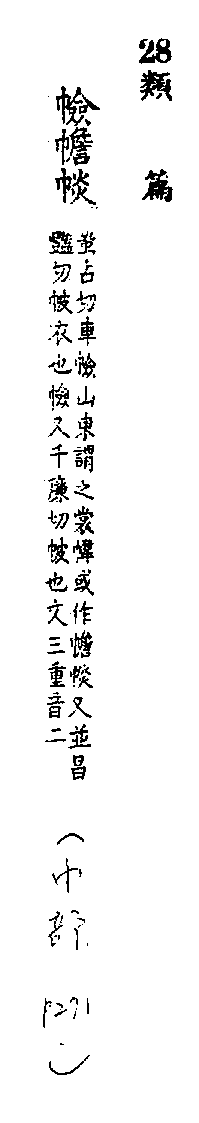 28類篇
幨襜惔
蚩占切車幨山東謂之裳幃或作襜惔又並昌
豔切帔衣也幨又千廉切帔也文三重音二
(巾部 P291)